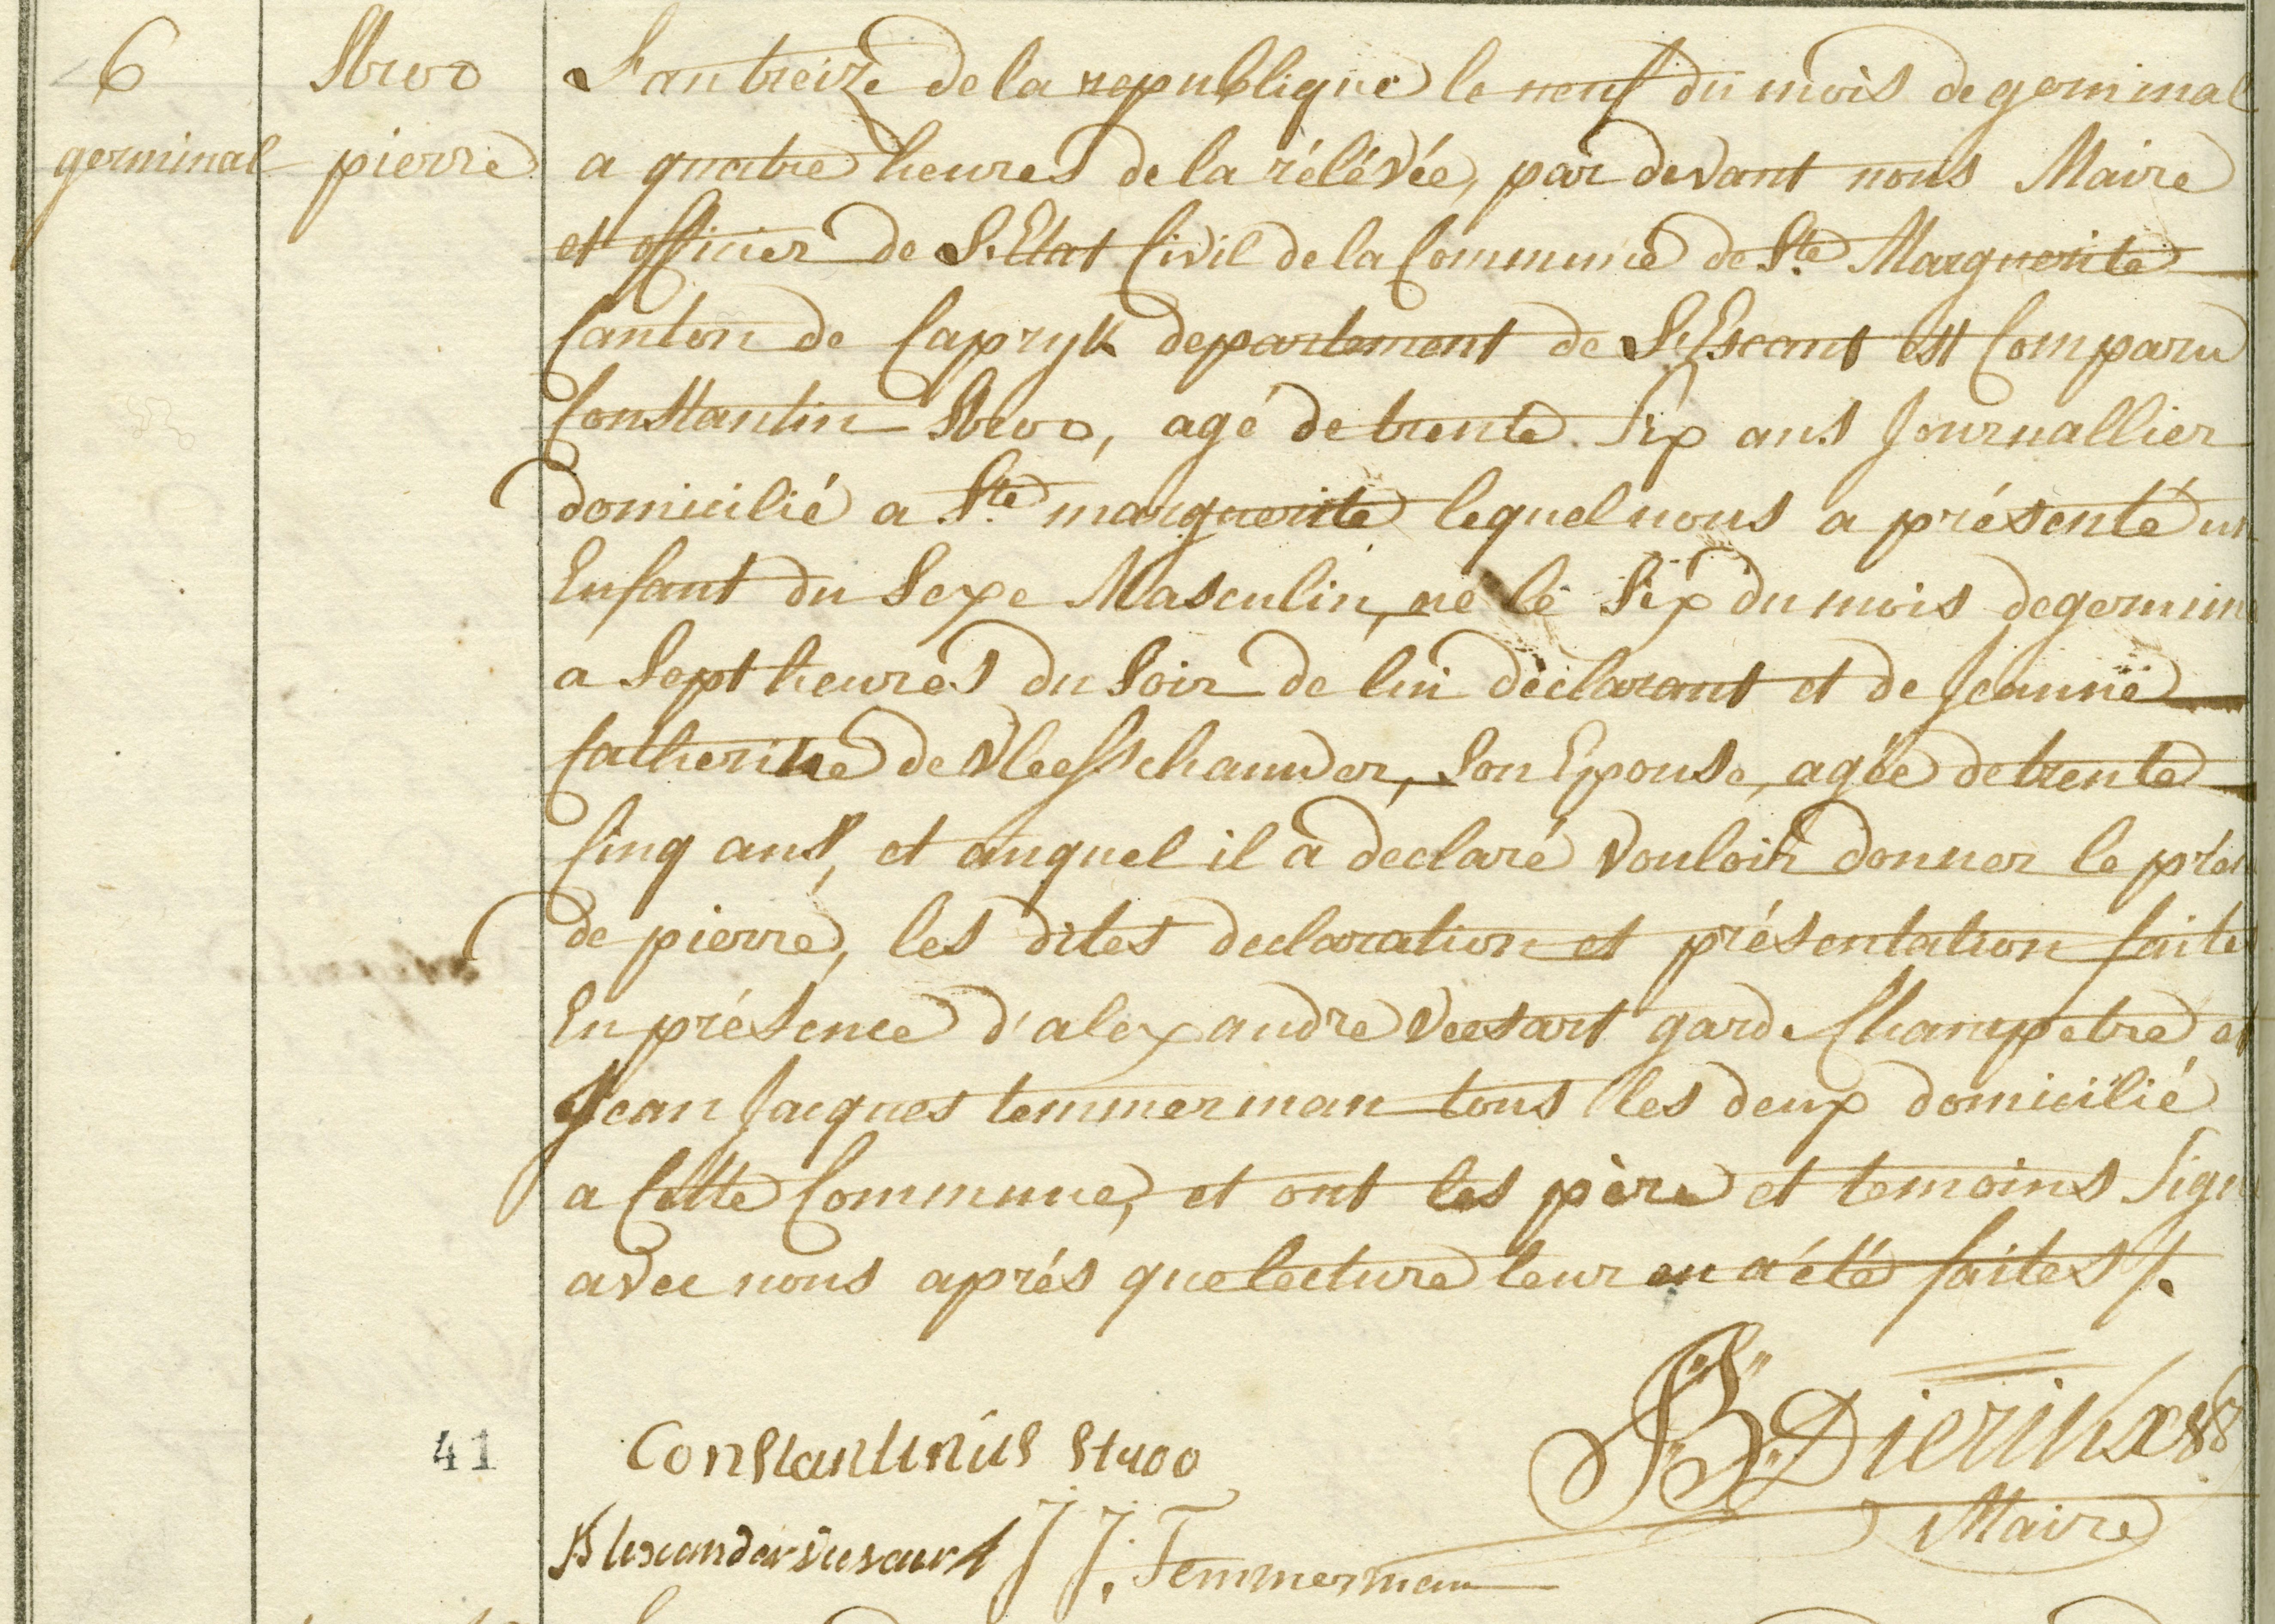 6
germinal
Stroo
pierre
L'an treize de la republique le neuf du mois de germinal
a quatre heures de la rélévée, par devant nous Maire
et officier de L'Etat Civil de la Commune de Ste Marguerite
Canton de Capryk departement de L'Escaut est Comparu
Constantin Stroo, agé de trente Six ans Journallier
domicilié a Ste marguerite lequel nous a présenté un
Enfant du Sexe Masculin, né le Six du mois de germin
a Sept heures du Soir de lui déclarant et de Jeanne
Catherine de Vleesschauwer, Son Epouse, agée de trente
Cinq ans, et auquel il a declaré vouloir donner le prén
de pierre, les dites declaration et présentation faite
En présence d'alexandre Veesart garde Champetre et
Jean Jacques temmerman tous les deux domicilié
a Cette Commune, et ont les père et temoins Sign
avec nous aprés que lecture leur en a été faites /.
41
Constantinus Stroo
JB Dierinx
Maire
Alexander Veesaert J J. Temmerman